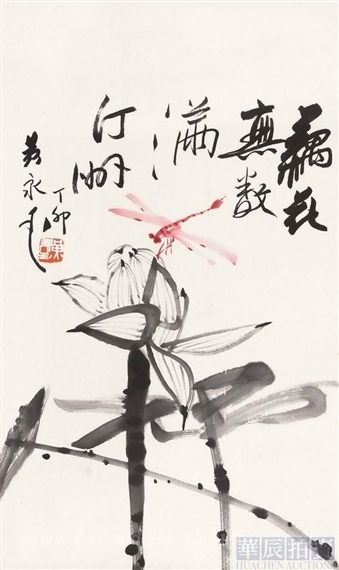 藕花
無數
滿
汀洲
丁卯
黄永玉
華辰拍賣
HUACHEN AUCTION